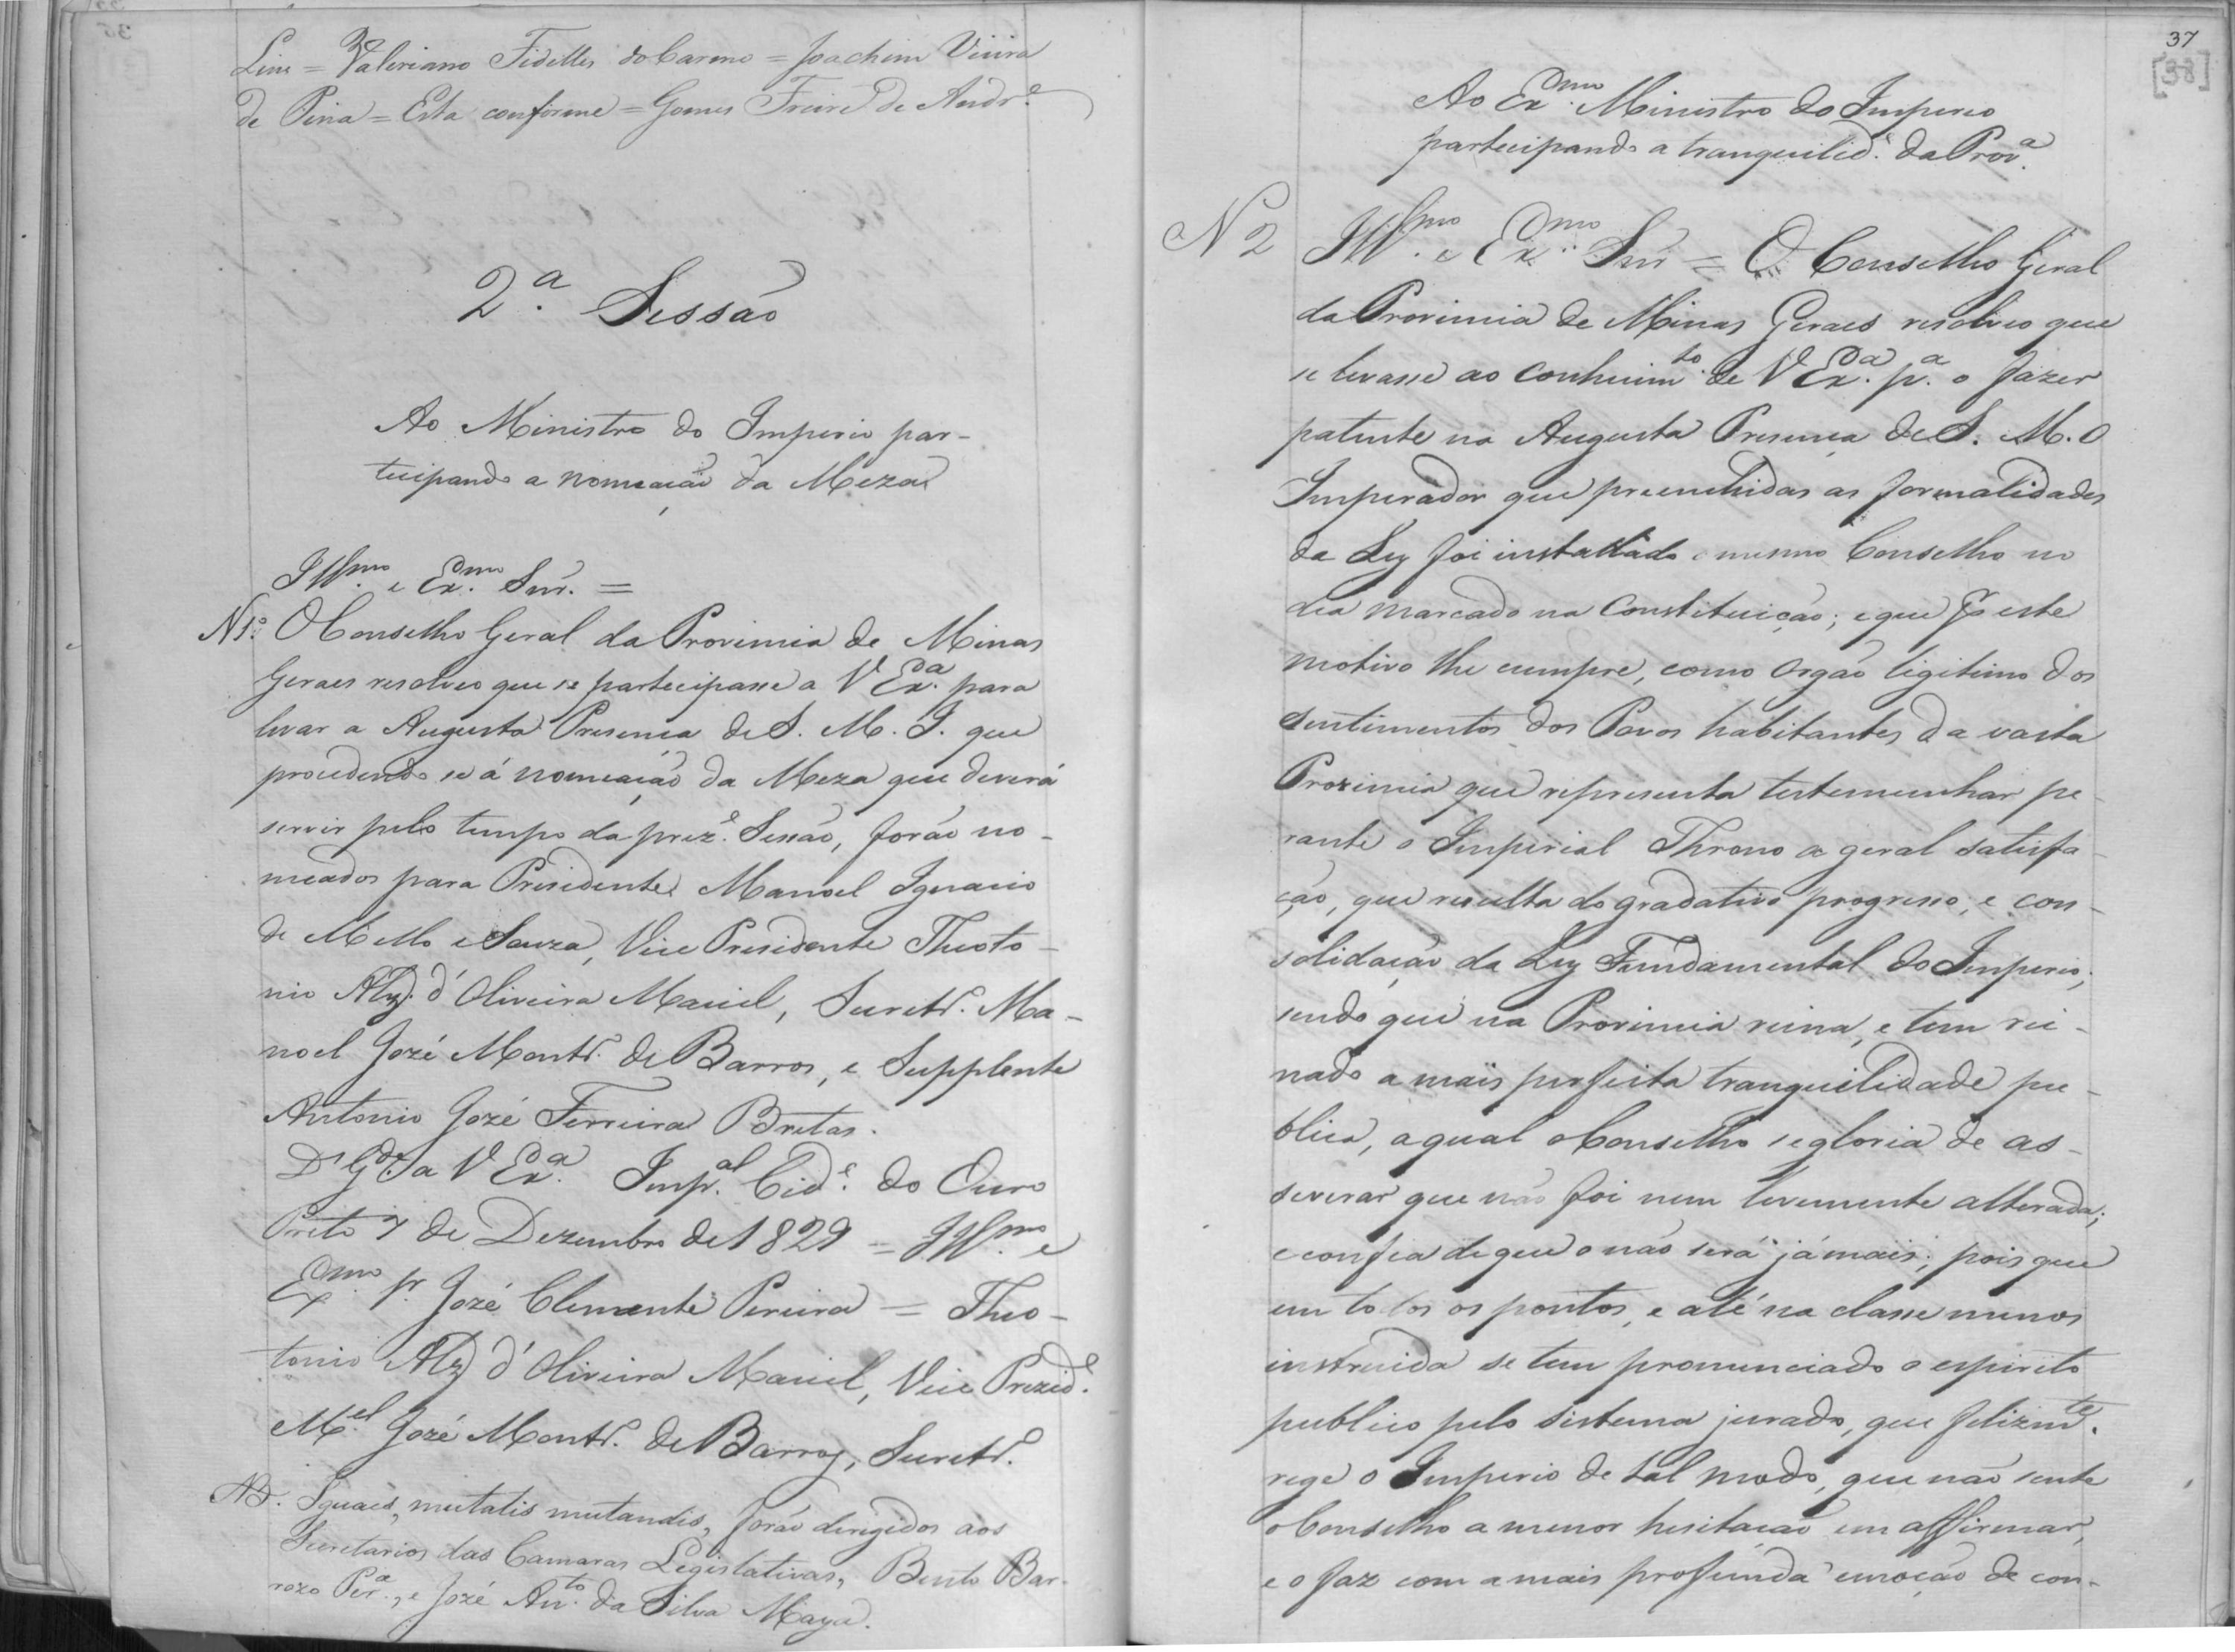 Lima = Valeriano Fidelles do Carmo = Joachim Vieira
de Pina = Esta conforme = Gomes Freire de Andr.e
2.a Sessão
Ao Ministro do Imperio par-
tecipando a nomeação da Meza
Illmo. e Ex.mo Snr. =
N 1.o O Conselho Geral da Provincia de Minas
Geraes resolveo que se partecipasse a V Ex.a para
levar a Augusta Presença de S. M. I. que
procedendo se á nomeação da Meza que deverá
servir pelo tempo da prez.e Sessão, forão no-
meados para Presidente Manoel Ignacio
de Mello e Souza, Vice Presidente Theoto-
nio Alz. d'Oliveira Maciel, Secretr.o Ma-
noel Jozé Montr.o de Barros, e Supplente
Antonio Jozé Ferreira Bretas.
Ds G.de a V Ex.a Imp.al Cid.e do Ouro
Preto 7 de Dezembro de 1829 = Illmo. e
Ex.mo Sr. Jozé Clemente Pereira = Theo-
tonio Alz d'Oliveira Maciel, Vice Prezid.e
M.el Jozé Montr.o de Barros, Secretr.o
NB. Iguaes, mutatis mutandis, forão dirigidos aos
Secretarios das Camaras Legislativas, Bento Bar-
rozo Per.a, e Jozé Ant.o da Silva Maya.
37
[38]
Ao Ex.mo Ministro do Imperio
partecipando a tranquilid.e da Prov.a
N 2 Illmo. e Ex.mo Snr = O Conselho Geral
da Provincia de Minas Geraes resolveo que
se levasse ao conhecim.to de V Ex.a p.a o fazer
patente na Augusta Presença de S. M. O
Imperador que preenchidas as formalidades
da Ley foi installado o mesmo Conselho no
dia marcado na Constituição; e que por este
motivo lhe cumpre, como orgão legitimo dos
sentimentos dos Povos habitantes da vasta
Provincia que representa testemunhar pe-
rante o Imperial Throno a geral satisfa-
ção, que resulta do gradativo progresso, e con-
solidação da Ley Fundamental do Imperio;
sendo que na Provincia reina, e tem rei-
nado a mais perfeita tranquilidade pu-
blica, a qual o Conselho se gloria de as-
severar que não foi nem levemente alterada;
e confia de que o não será já mais; pois que
em todos os pontos, e até na classe menos
instruida se tem pronunciado o espirito
publico pelo sistema jurado, que felizm.te
rege o Imperio de tal modo, que não sente
o Conselho a menor hesitação em affirmar,
e o faz com a mais profunda emoção de con-